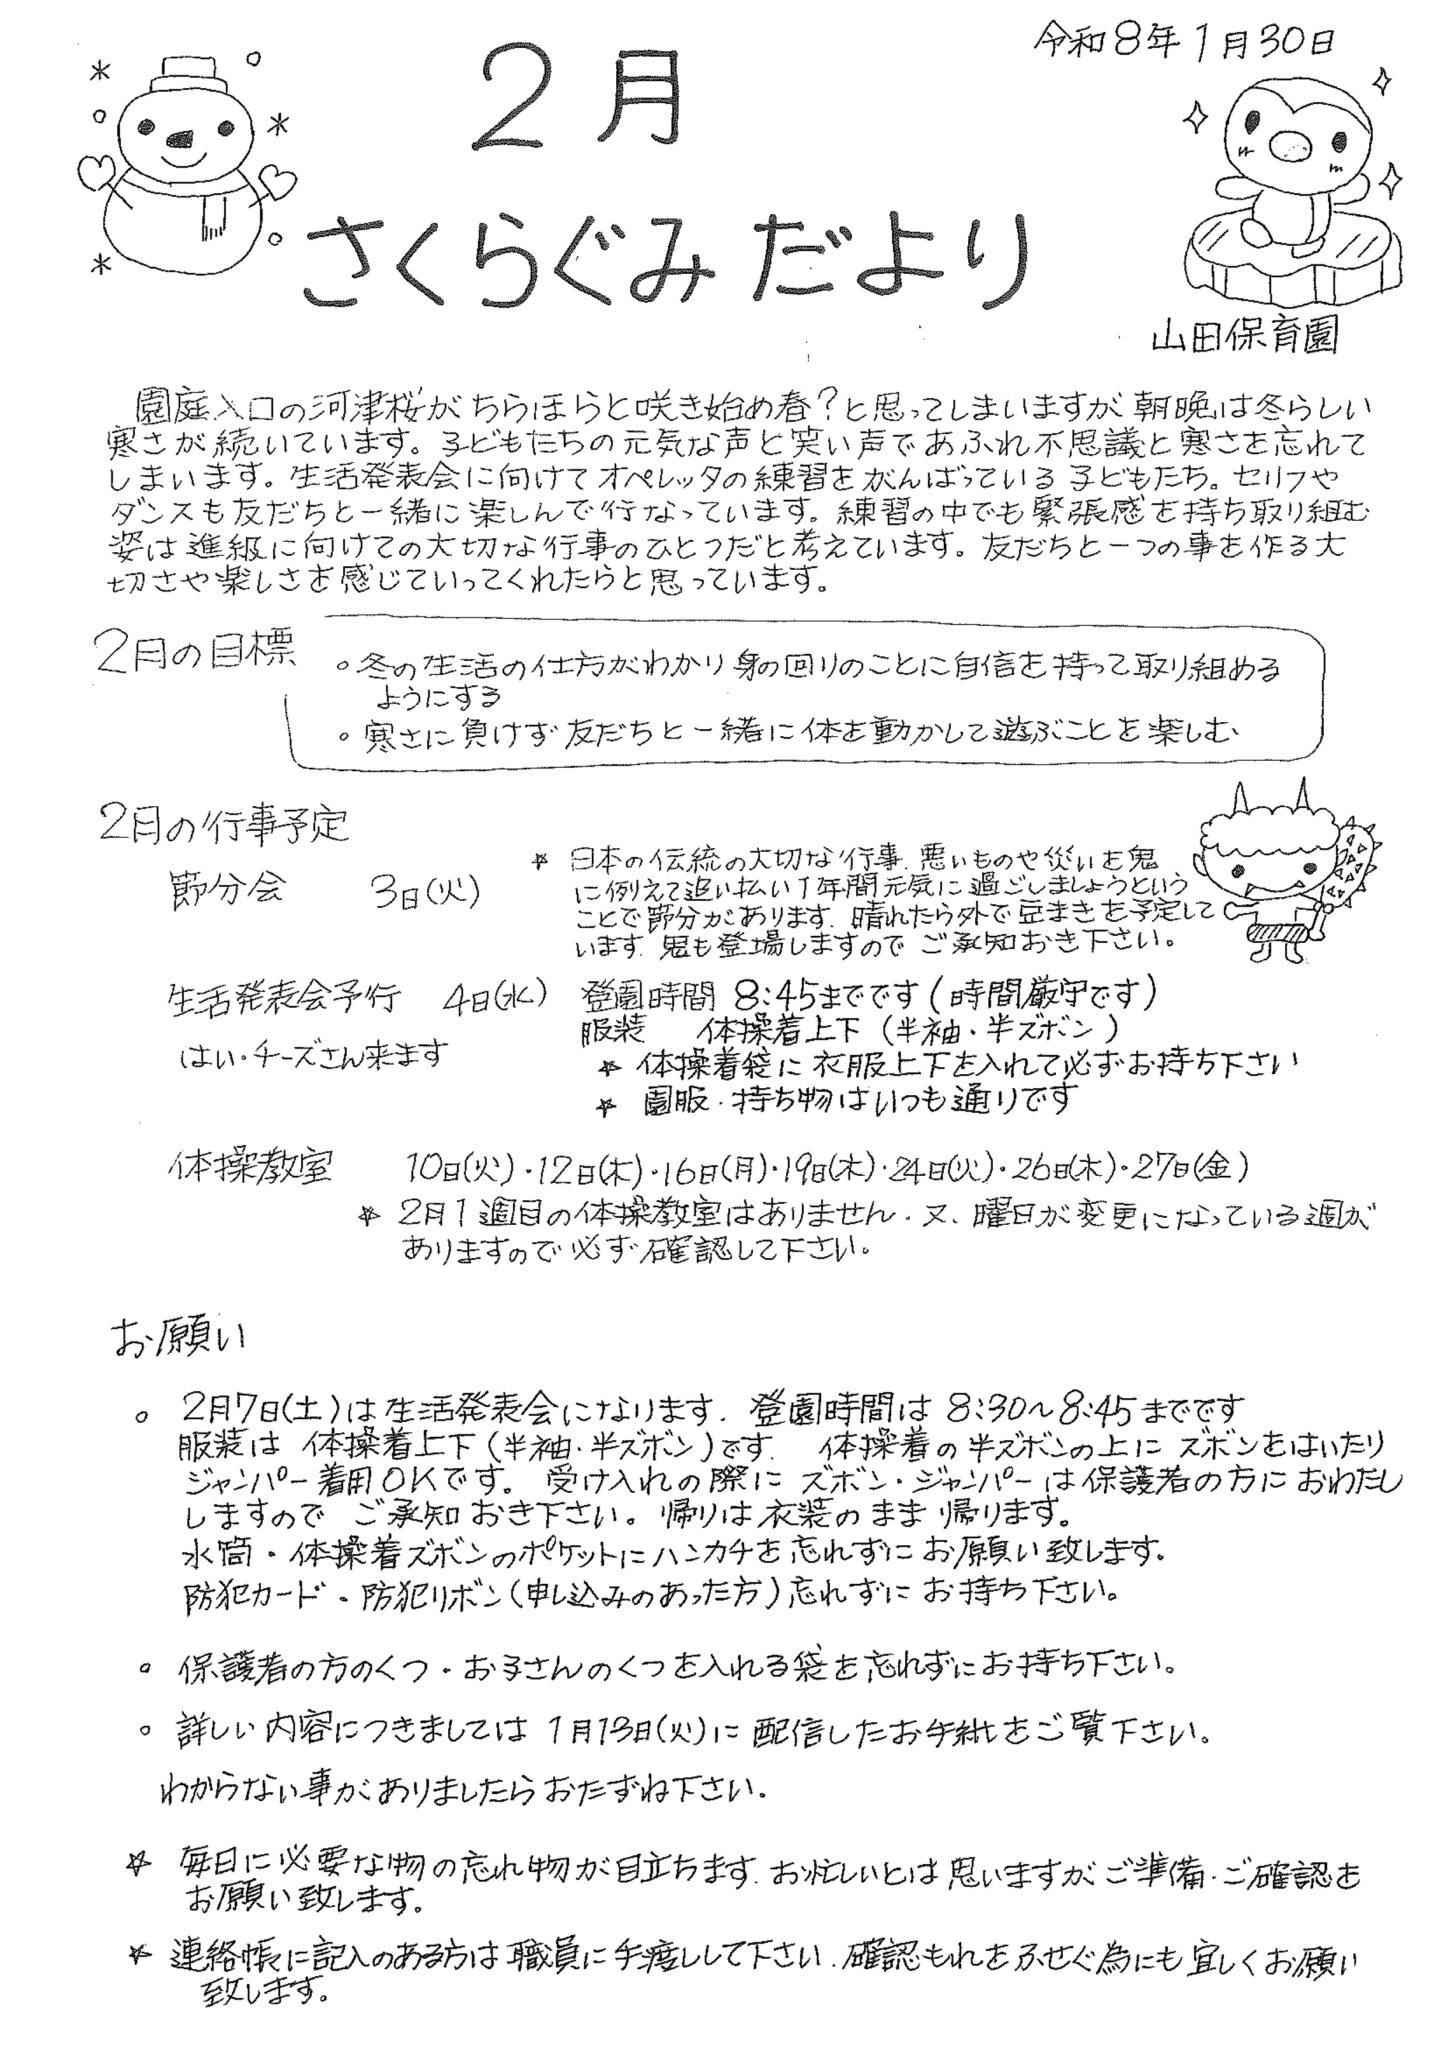 令和8年1月30日
2月
さくらぐみだより
山田保育園
園庭入口の河津桜がちらほらと咲き始め春?と思ってしまいますが朝晩は冬らしい
寒さが続いています。子どもたちの元気な声と笑い声であふれ不思議と寒さを忘れて
しまいます。生活発表会に向けてオペレッタの練習をがんばっている子どもたち。セリフや
ダンスも友だちと一緒に楽しんで行なっています。練習の中でも緊張感を持ち取り組む
姿は進級に向けての大切な行事のひとつだと考えています。友だちと一つの事を作る大
切さや楽しさを感じていってくれたらと思っています。
2月の目標
○冬の生活の仕方がわかり身の回りのことに自信を持って取り組める
ようにする
○寒さに負けず友だちと一緒に体を動かして遊ぶことを楽しむ
2月の行事予定
節分会 3日(火) ☆日本の伝統の大切な行事.悪いものや災いを鬼
に例えて追い払い1年間元気に過ごしましょうという
ことで節分があります.晴れたら外で豆まきを予定して
います.鬼も登場しますのでご承知おき下さい。
生活発表会予行 4日(水) 登園時間 8:45までです(時間厳守です)
服装 体操着上下(半袖・半ズボン)
はい・チーズさん来ます
☆体操着袋に衣服上下を入れて必ずお持ち下さい
☆園服・持ち物はいつも通りです
体操教室 10日(火)・12日(木)・16日(月)・19日(木)・24日(火)・26日(木)・27日(金)
☆2月1週目の体操教室はありません.又、曜日が変更になっている週が
ありますので必ず確認して下さい。
お願い
○2月7日(土)は生活発表会になります.登園時間は8:30~8:45までです
服装は体操着上下(半袖・半ズボン)です. 体操着の半ズボンの上にズボンをはいたり
ジャンパー着用OKです。受け入れの際にズボン・ジャンパーは保護者の方におわたし
しますのでご承知おき下さい。帰りは衣装のまま帰ります。
水筒・体操着ズボンのポケットにハンカチを忘れずにお願い致します.
防犯カード・防犯リボン(申し込みのあった方)忘れずにお持ち下さい。
○保護者の方のくつ・お子さんのくつを入れる袋を忘れずにお持ち下さい。
○詳しい内容につきましては1月13日(火)に配信したお手紙をご覧下さい。
わからない事がありましたらおたずね下さい.
☆毎日に必要な物の忘れ物が目立ちます.お忙しいとは思いますがご準備・ご確認を
お願い致します。
☆連絡帳に記入のある方は職員に手渡しして下さい.確認もれをふせぐ為にも宜しくお願い
致します。